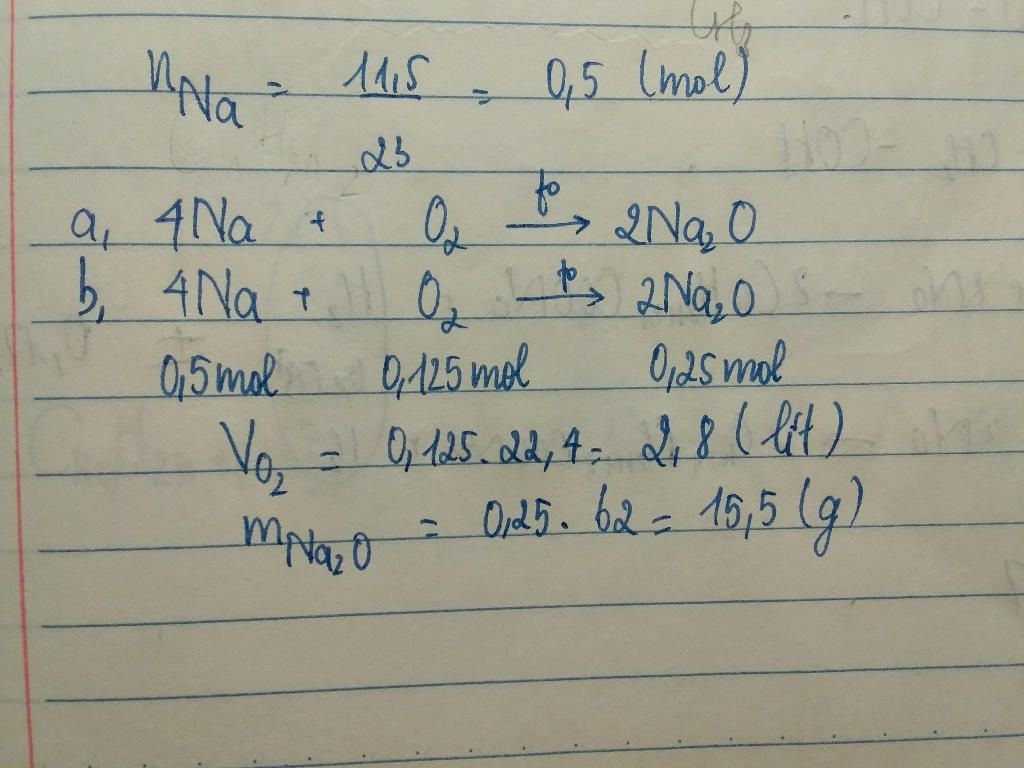 nNa = 11,5/23 = 0,5 (mol)
a, 4Na + O2 —t°→ 2Na2O
b, 4Na + O2 —t°→ 2Na2O
0,5mol 0,125mol 0,25mol
VO2 = 0,125.22,4= 2,8 (lít)
mNa2O = 0,25. 62 = 15,5 (g)